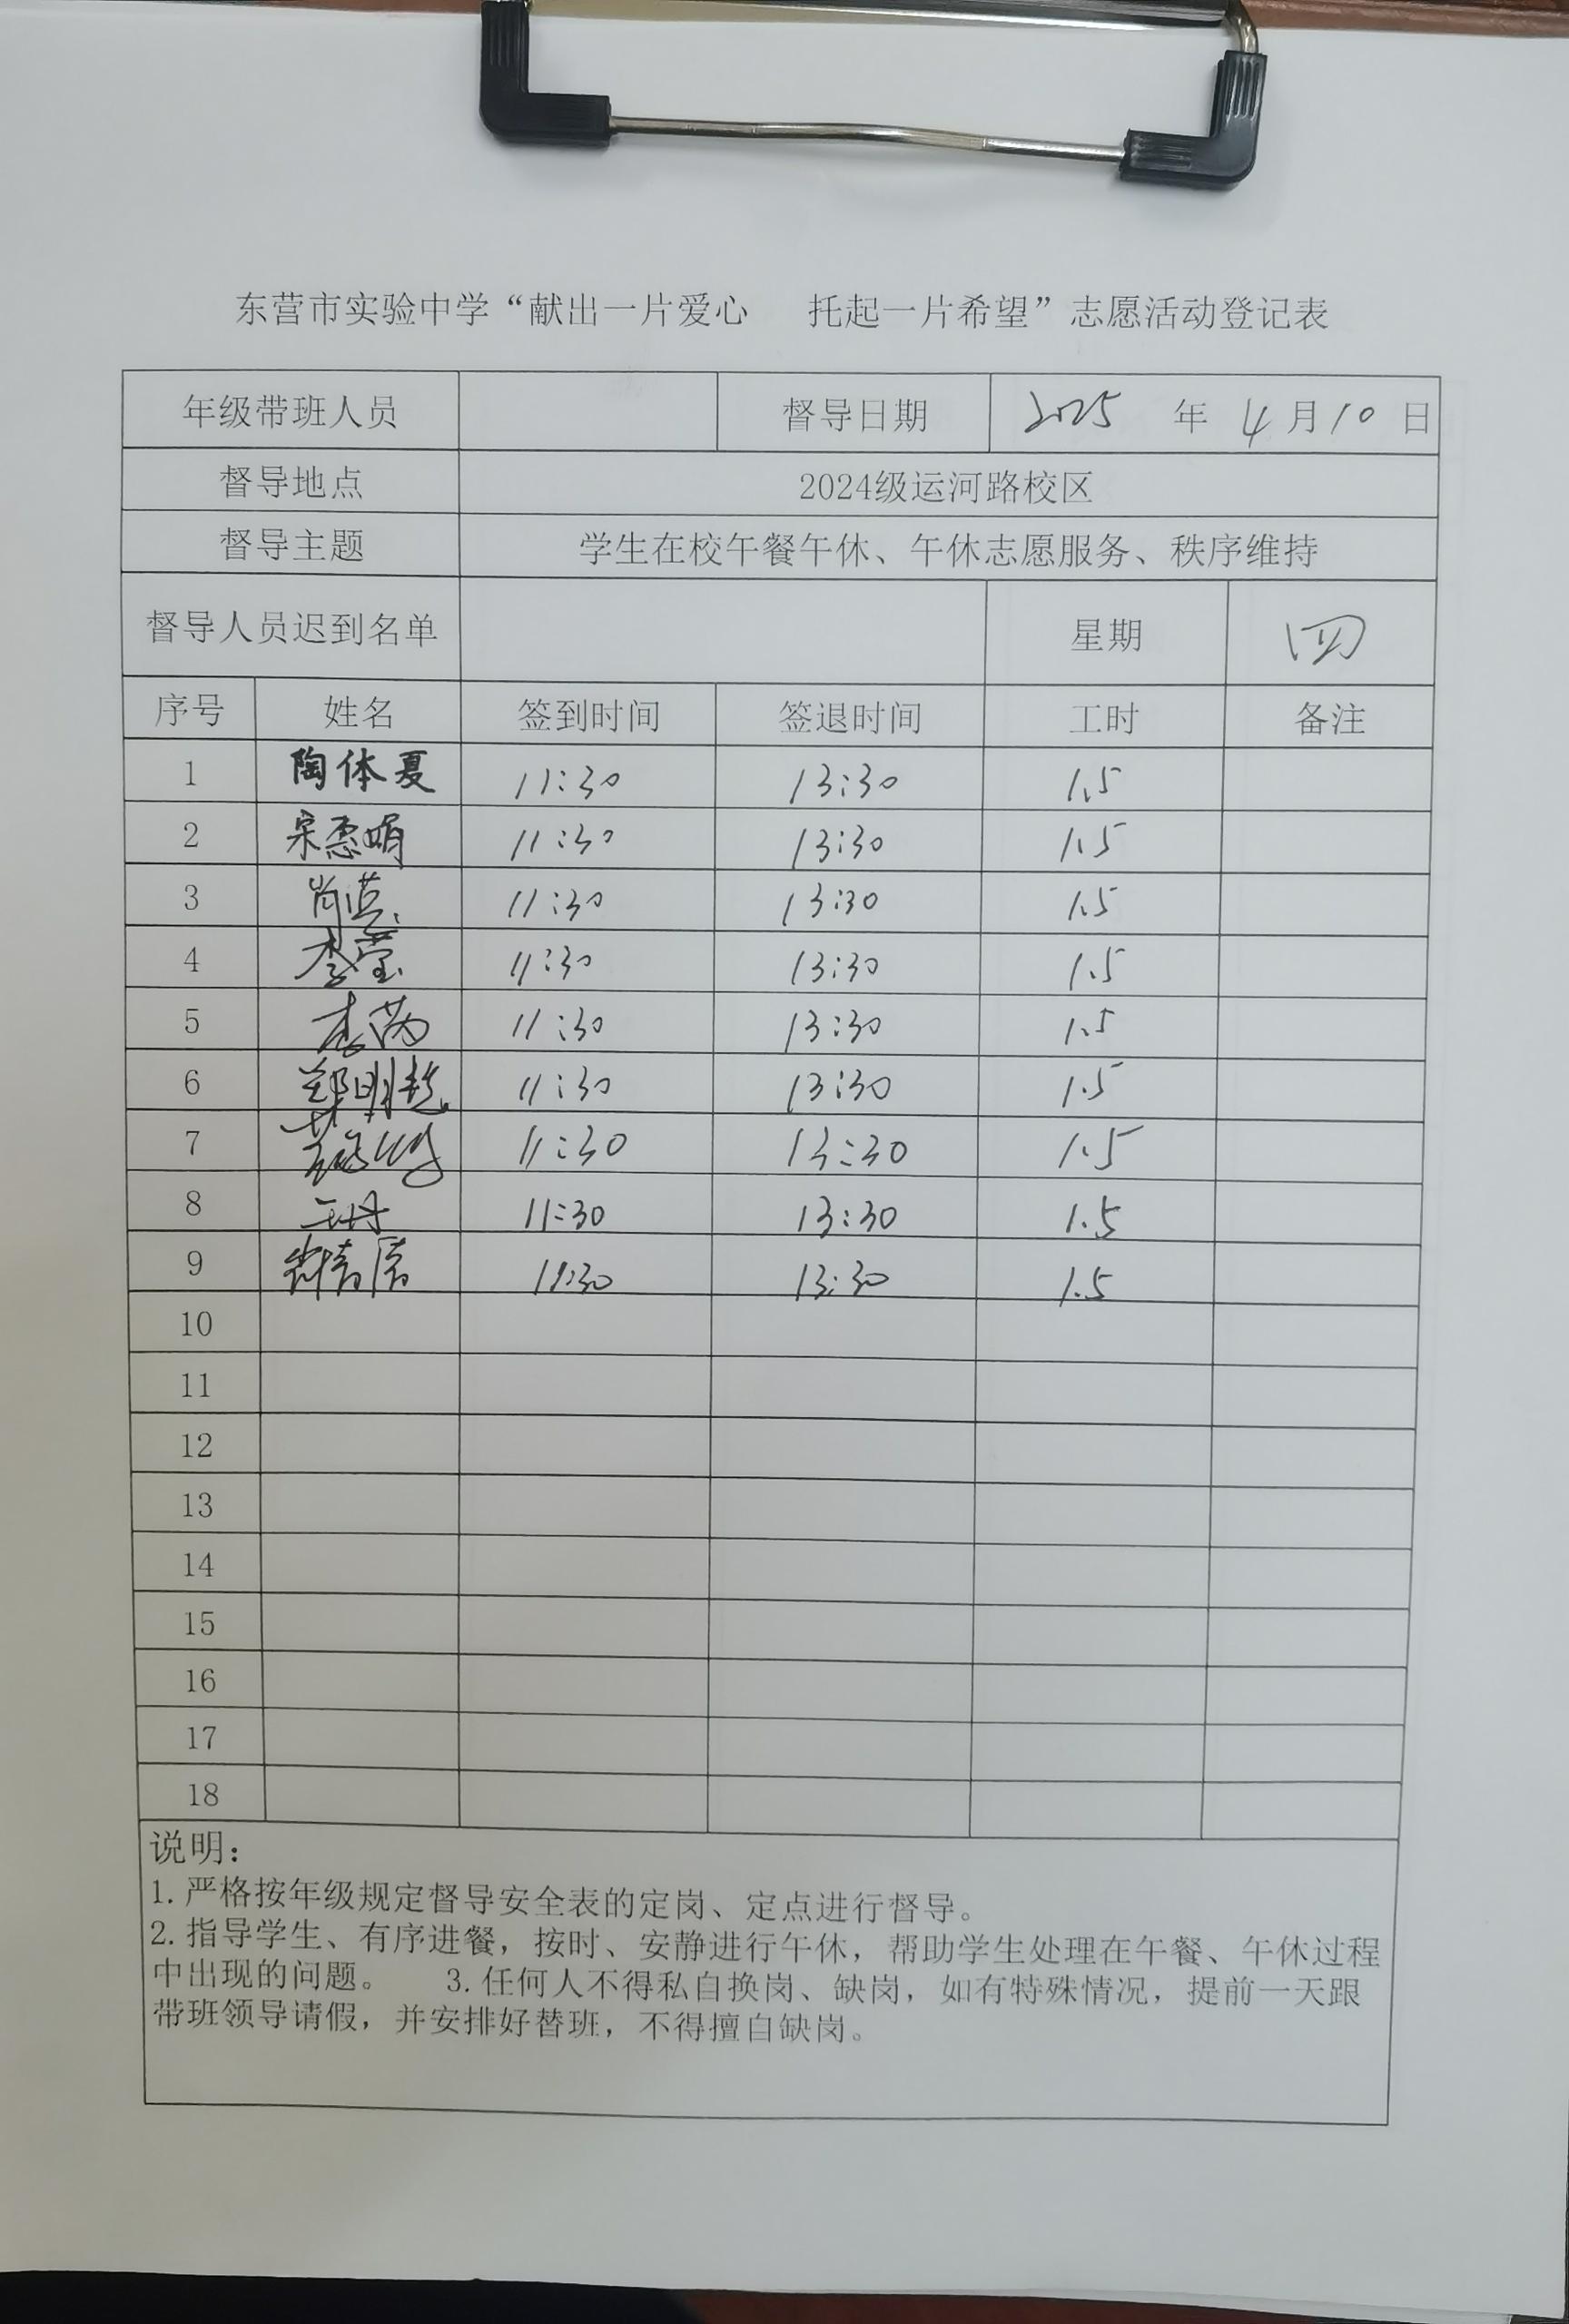 东营市实验中学“献出一片爱心 托起一片希望”志愿活动登记表
年级带班人员 督导日期 2025 年 4 月 10 日
督导地点 2024级运河路校区
督导主题 学生在校午餐午休、午休志愿服务、秩序维持
督导人员迟到名单 星期 四
序号 姓名 签到时间 签退时间 工时 备注
1 陶体夏 11:30 13:30 1.5
2 宋惠娟 11:30 13:30 1.5
3 11:30 13:30 1.5
4 李莹 11:30 13:30 1.5
5 李 11:30 13:30 1.5
6 郑明 11:30 13:30 1.5
7 11:30 13:30 1.5
8 11:30 13:30 1.5
9 11:30 13:30 1.5
10
11
12
13
14
15
16
17
18
说明：
1. 严格按年级规定督导安全表的定岗、定点进行督导。
2. 指导学生、有序进餐，按时、安静进行午休，帮助学生处理在午餐、午休过程
中出现的问题。 3. 任何人不得私自换岗、缺岗，如有特殊情况，提前一天跟
带班领导请假，并安排好替班，不得擅自缺岗。